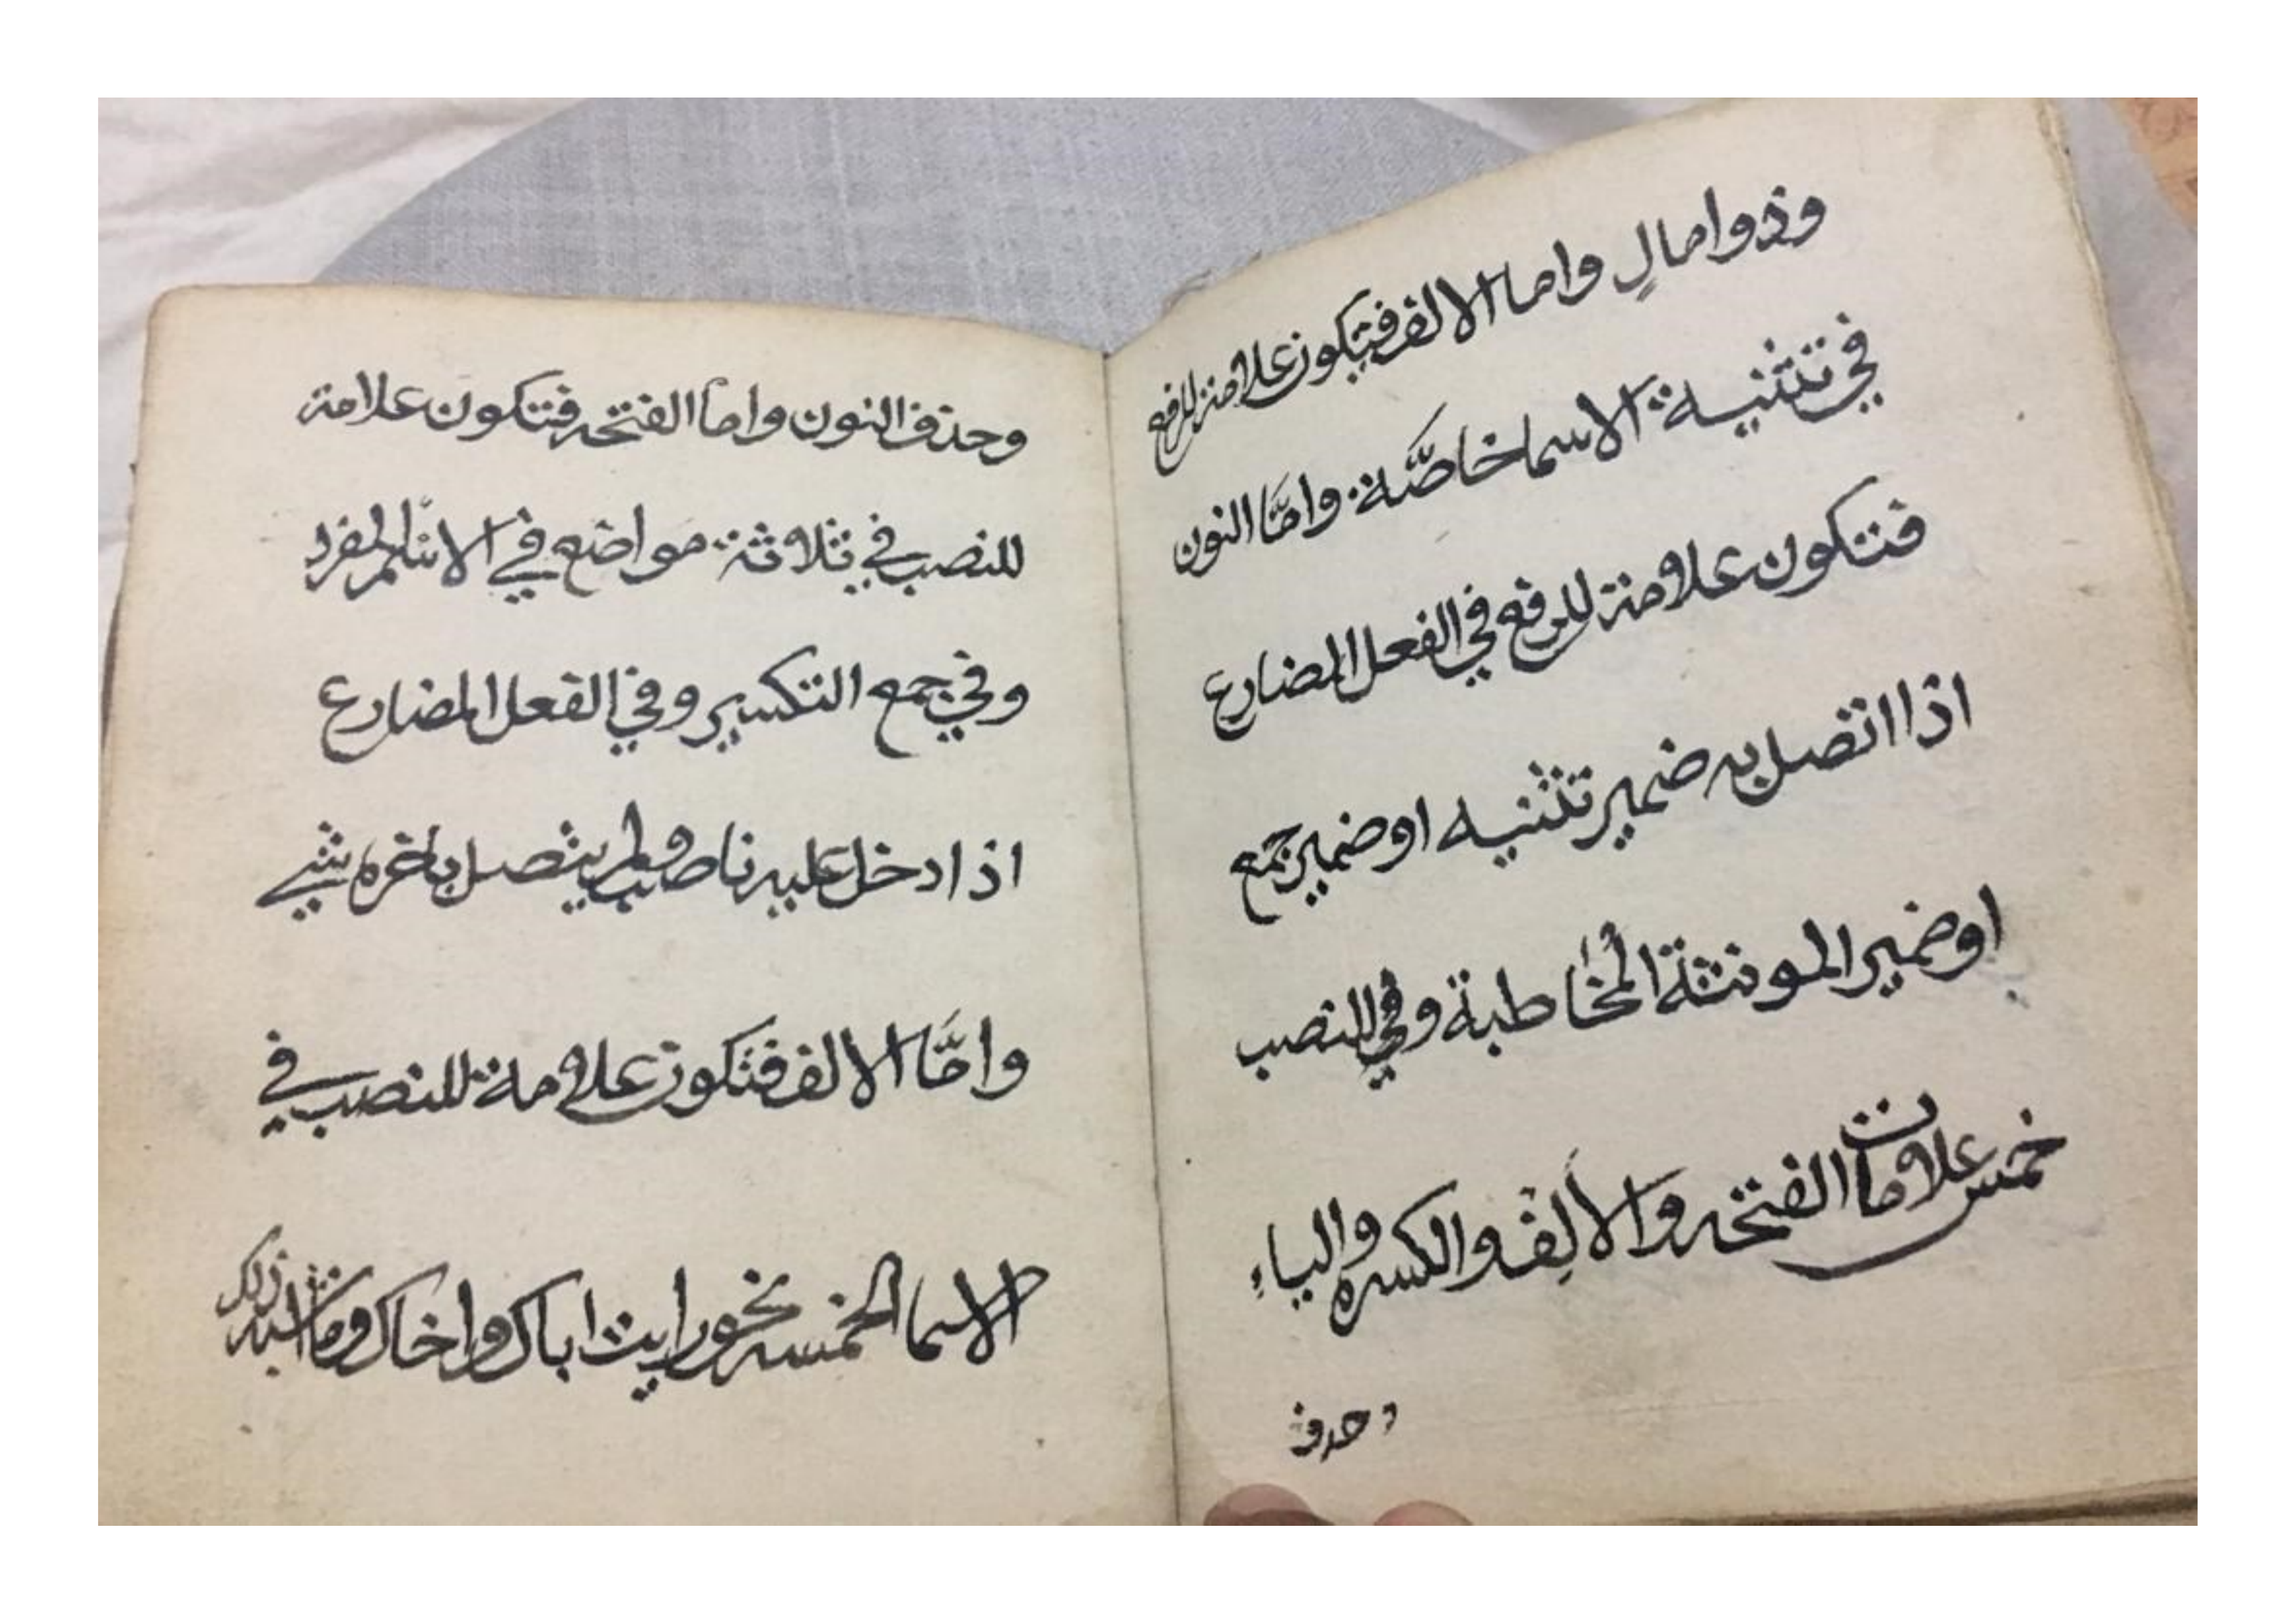 وذوا مالٍ واما الالف فتكون علامة للرفع
في تثنية الاسما خاصَّة وامَّا النون
فتكون علامة للرفع في الفعل المضارع
اذا اتصل به ضمير تثنيه او ضمير جمع
او ضمير المونثة المخاطبة وفي للنصب
خمس علامات الفتحه والالف والكسره والياء
وحدف
وحذف النون واما الفتحه فتكون علامة
للنصب في ثلاثة مواضع في الاسم المفرد
وفي جمع التكسير وفي الفعل المضارع
اذا دخل عليه ناصب ولم يتصل باخره شي
وامَّا الالف فتكون علامة للنصب في
الاسما الخمسه نحو رايت اباك واخاك وما اشبه ذلك